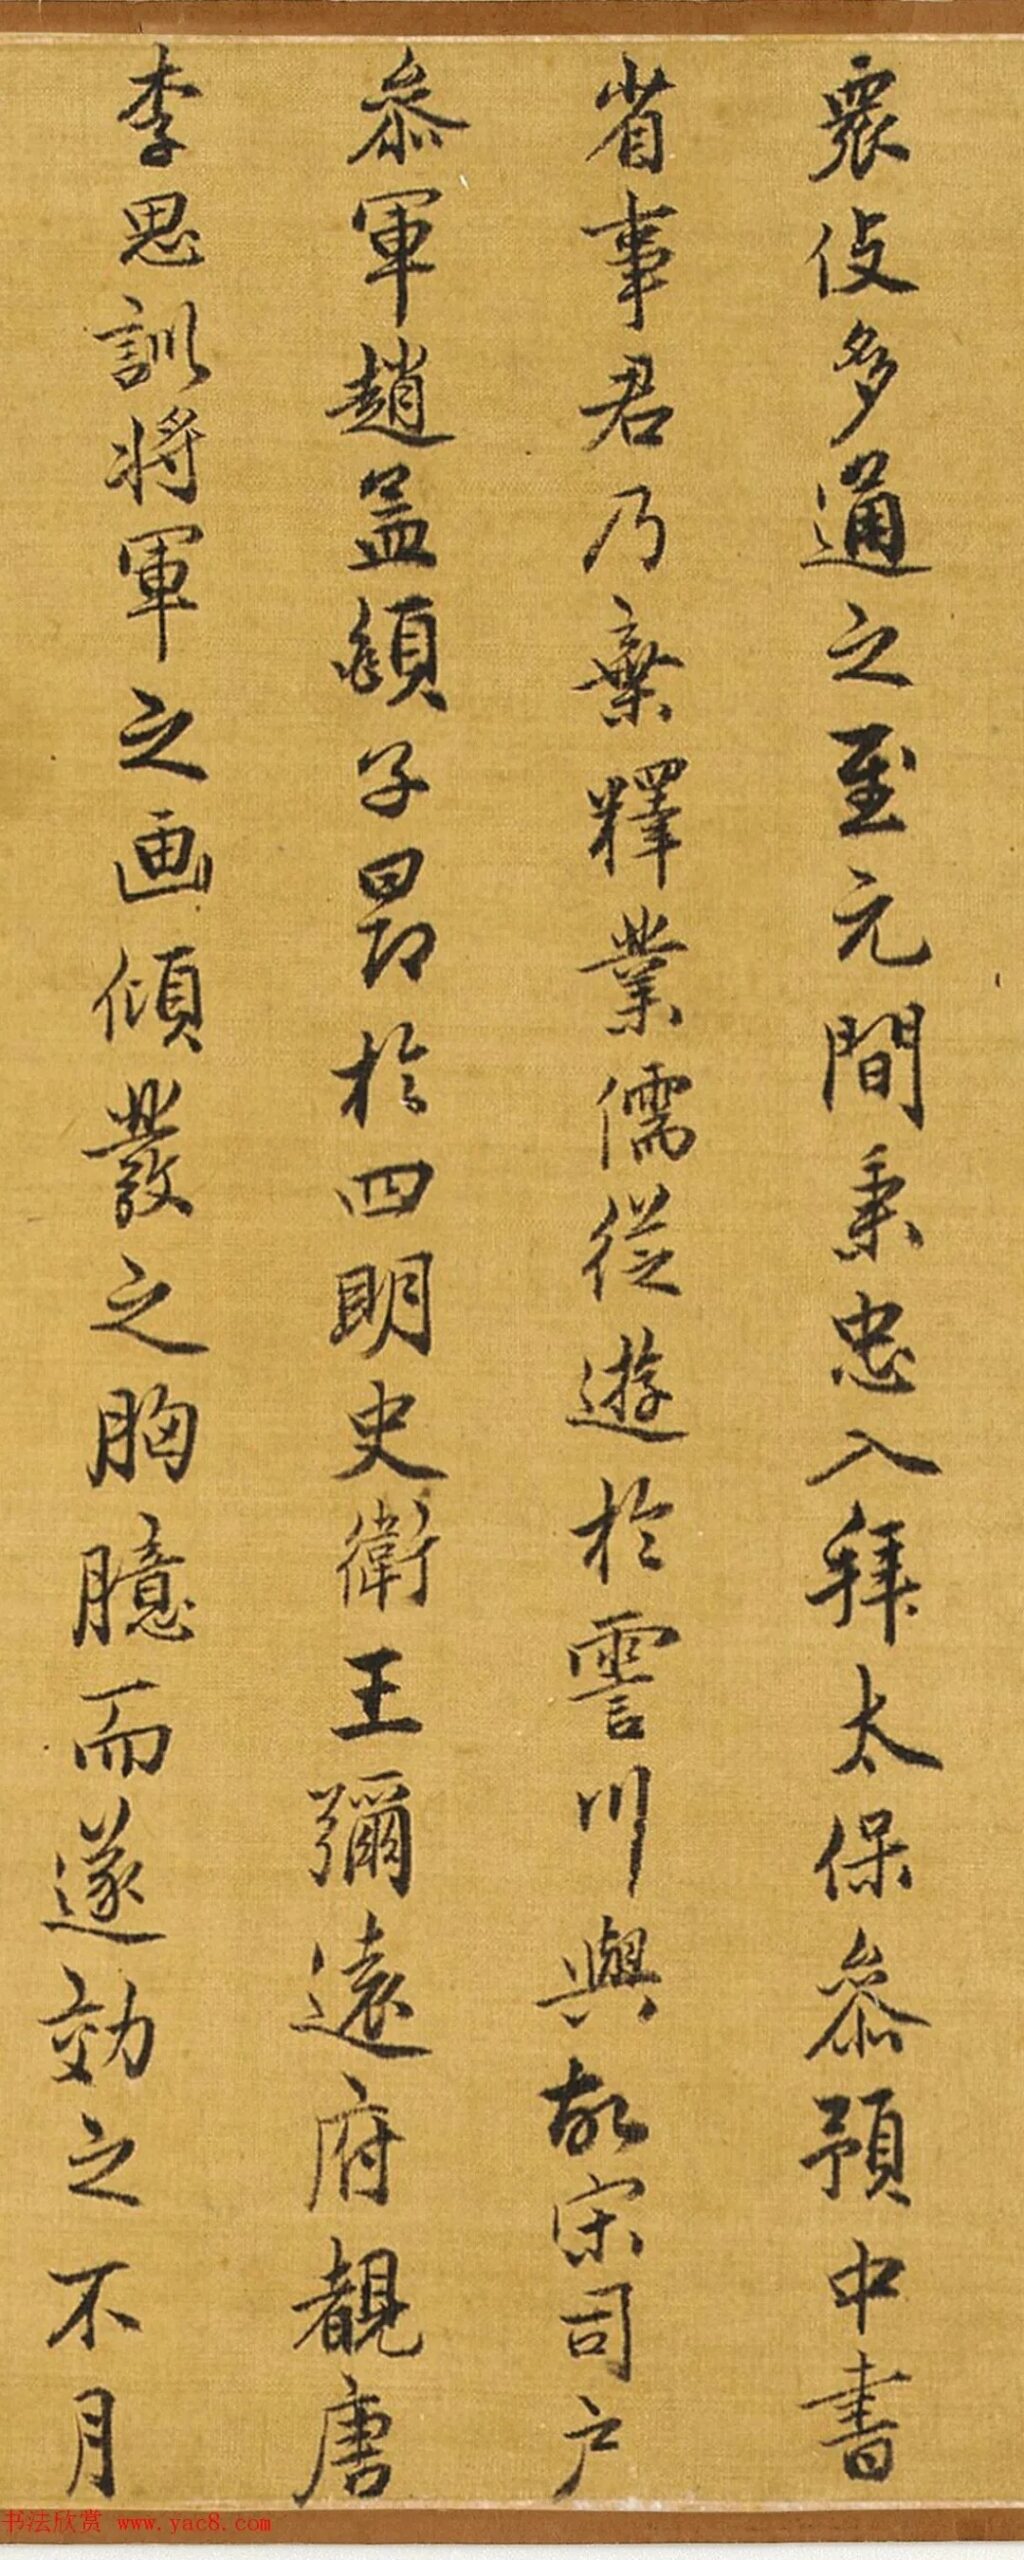 眾伎多通之至元間秉忠入拜太保參預中書
省事君乃棄釋業儒從遊於霅川與故宋司戶
參軍趙孟頫子昂於四明史衛王彌遠府覩唐
李思訓將軍之画傾裝之胸臆而遂効之不月
书法欣赏 www.yac8.com